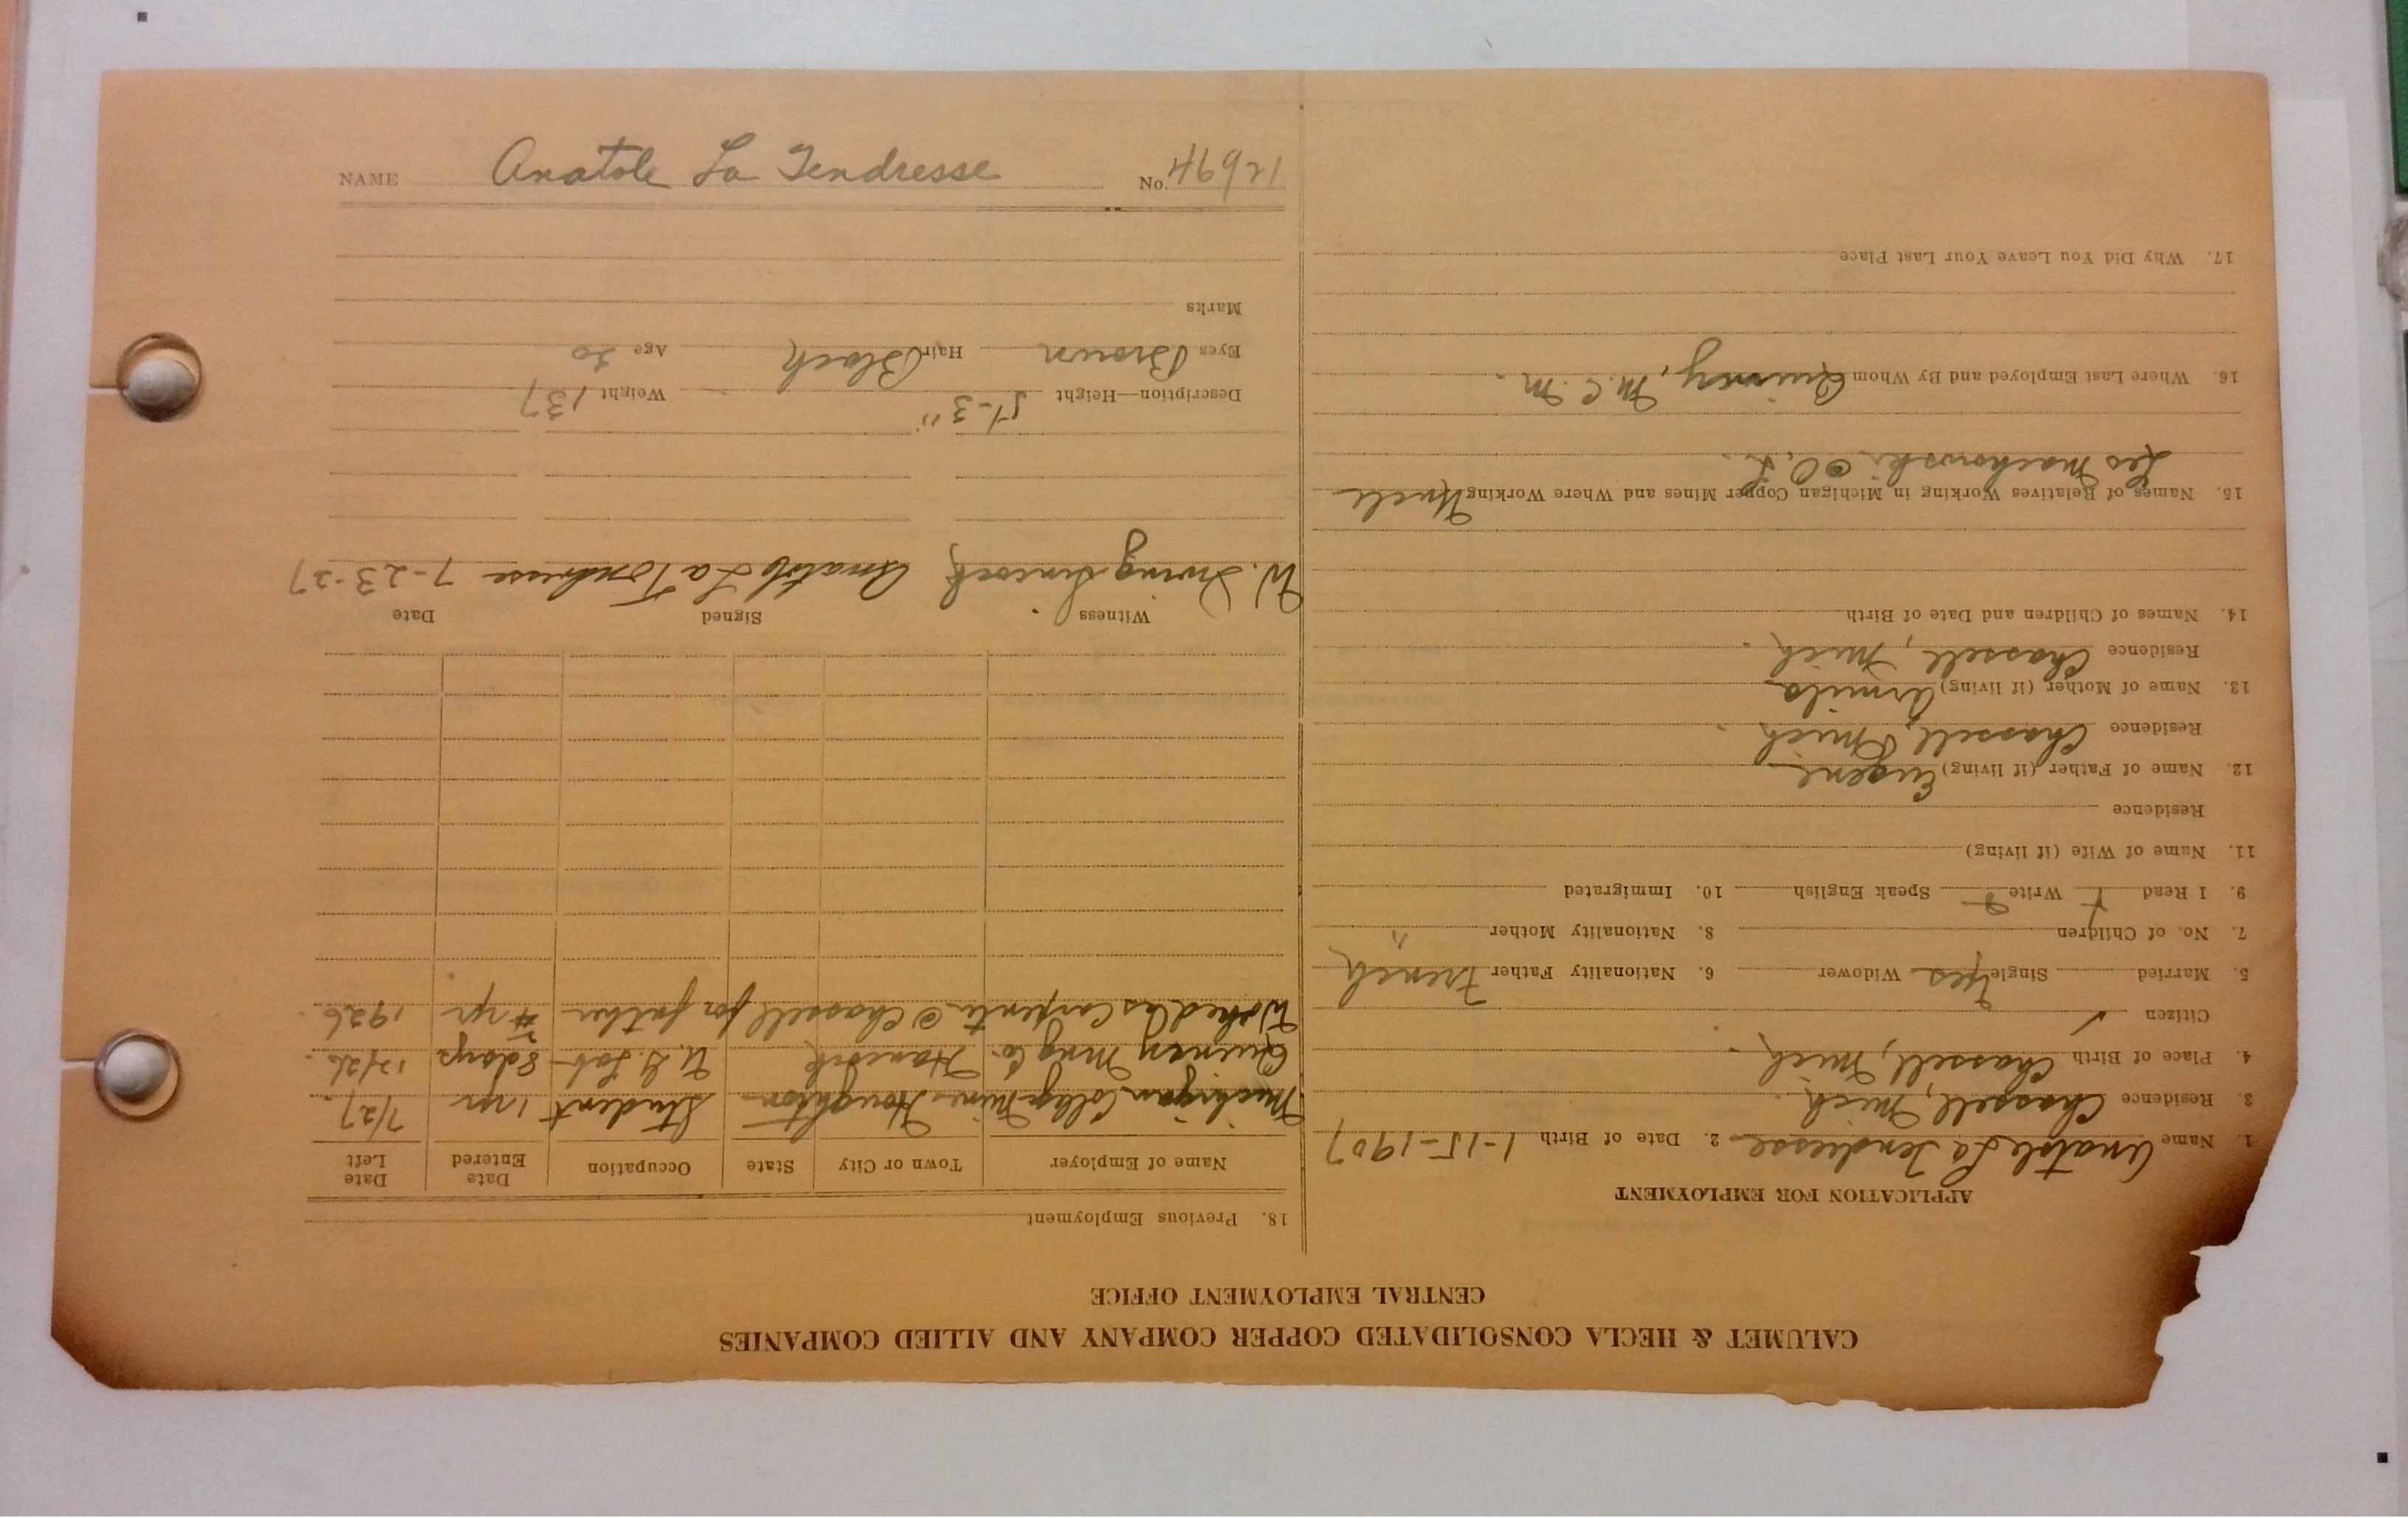 CALUMET & HECLA CONSOLIDATED COPPER COMPANY AND ALLIED COMPANIES
CENTRAL EMPLOYMENT OFFICE
APPLICATION FOR EMPLOYMENT
1. Name Anatole La Tendresse 2. Date of Birth 1-15-1907
3. Residence Chassell, Mich.
4. Place of Birth Chassell, Mich.
Citizen ✓
5. Married Single Yes Widower 6. Nationality Father French
7. No. of Children 8. Nationality Mother "
9. I Read Write Speak English 10. Immigrated
11. Name of Wife (if living)
Residence
12. Name of Father (if living) Eugene
Residence Chassell, Mich.
13. Name of Mother (if living) Armila
Residence Chassell, Mich.
14. Names of Children and Date of Birth
15. Names of Relatives Working in Michigan Copper Mines and Where Working Uncle
Leo
16. Where Last Employed and By Whom Quincy, M.C.M.
17. Why Did You Leave Your Last Place
18. Previous Employment
Name of Employer Town or City State Occupation Date Entered Date Left
Michigan College Mines Houghton Student 1 yr 7/27.
Quincy Mng Co. Hancock U.G. Lab 8 days 12/26.
Worked as Carpenter @ Chassell for father yr 1926.
Witness Signed Date
W. Irving Anatole La Tendresse 7-23-27
Description—Height 5'-3" Weight 137
Eyes Brown Hair Black Age 20
Marks
NAME Anatole La Tendresse No. 46921